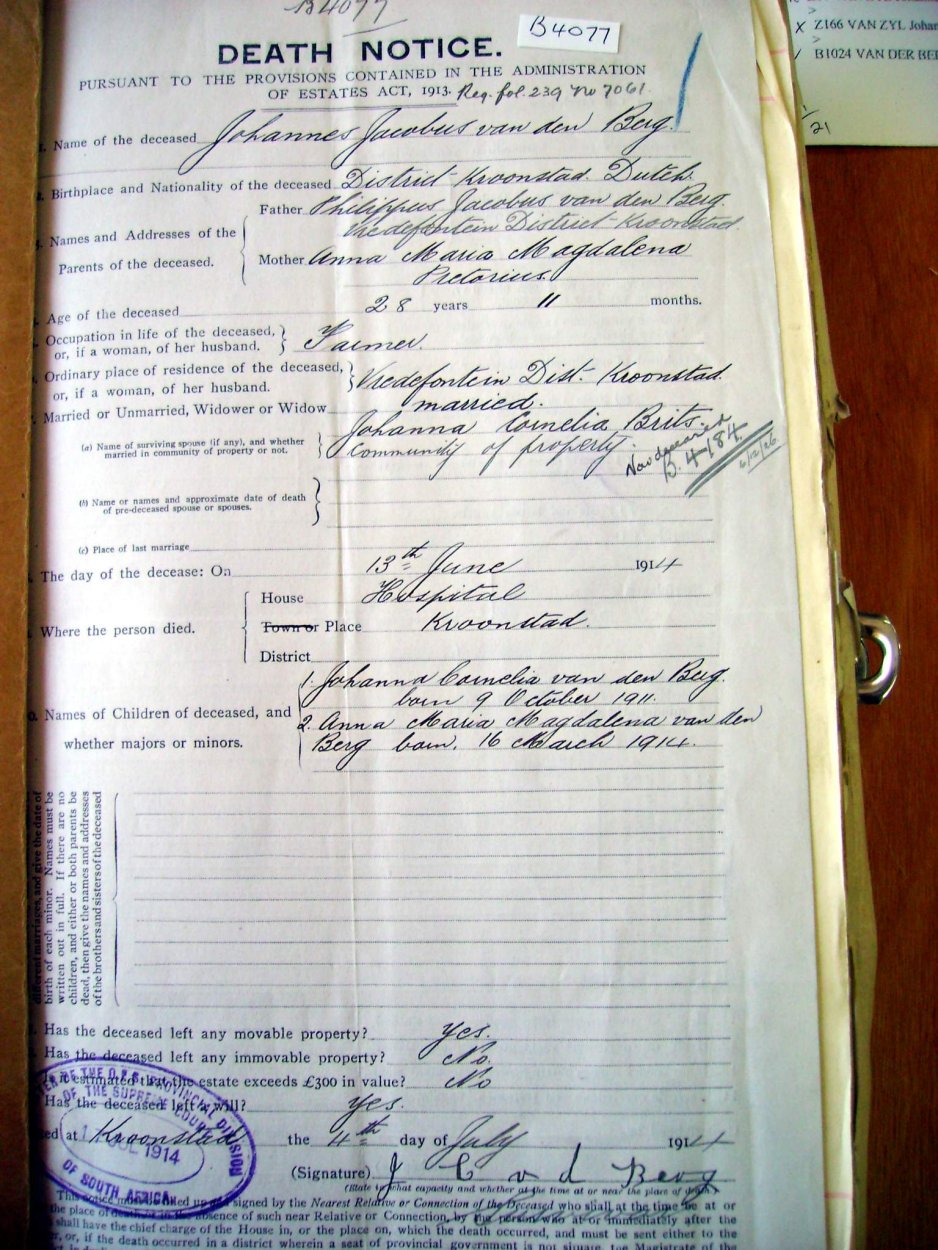 B4077
B4077
Z166 VAN ZYL Johan
B1024 VAN DER BER
21
DEATH NOTICE.
PURSUANT TO THE PROVISIONS CONTAINED IN THE ADMINISTRATION
OF ESTATES ACT, 1913. Reg. fol. 239 No 7061.
Name of the deceased Johannes Jacobus van den Berg.
Birthplace and Nationality of the deceased District Kroonstad Dutch.
Father Philippus Jacobus van den Berg.
Vredefontein District Kroonstad
Names and Addresses of the
Parents of the deceased.
Mother Anna Maria Magdalena
Pretorius.
Age of the deceased 28 years 11 months.
Occupation in life of the deceased,
or, if a woman, of her husband. Farmer.
Ordinary place of residence of the deceased,
or, if a woman, of her husband. Vredefontein Dist. Kroonstad.
Married or Unmarried, Widower or Widow married.
Johanna Cornelia Brits.
(a) Name of surviving spouse (if any), and whether
married in community of property or not. Community of property.
Now deceased
B. 4184
6/12/26
(b) Name or names and approximate date of death
of pre-deceased spouse or spouses.
(c) Place of last marriage
The day of the decease: On 13th June 1914
House Hospital
Where the person died. Town or Place Kroonstad.
District
1. Johanna Cornelia van den Berg.
born 9 October 1911.
Names of Children of deceased, and
whether majors or minors.
2. Anna Maria Magdalena van den
Berg born. 16 March 1914.
different marriages, and give the date of
birth of each minor. Names must be
written out in full. If there are no
children, and either or both parents be
dead, then give the names and addresses
of the brothers and sisters of the deceased
Has the deceased left any movable property? Yes.
Has the deceased left any immovable property? No.
Is it estimated that the estate exceeds £300 in value? No
Has the deceased left a will? Yes.
ed at Kroonstad the 4th day of July 1914
OF THE O.F.S. PROVINCIAL DIVISION
OF THE SUPREME COURT
JUL 1914
OF SOUTH AFRICA
(Signature) J C v d Berg
(State in what capacity and whether at the time at or near the place of death.)
This notice must be filled up and signed by the Nearest Relative or Connection of the Deceased who shall at the time be at or
the place of death or in the absence of such near Relative or Connection, by the person who at or immediately after the
shall have the chief charge of the House in, or the place on, which the death occurred, and must be sent either to the
or, if the death occurred in a district wherein a seat of provincial government is not situate, the Magistrate of the